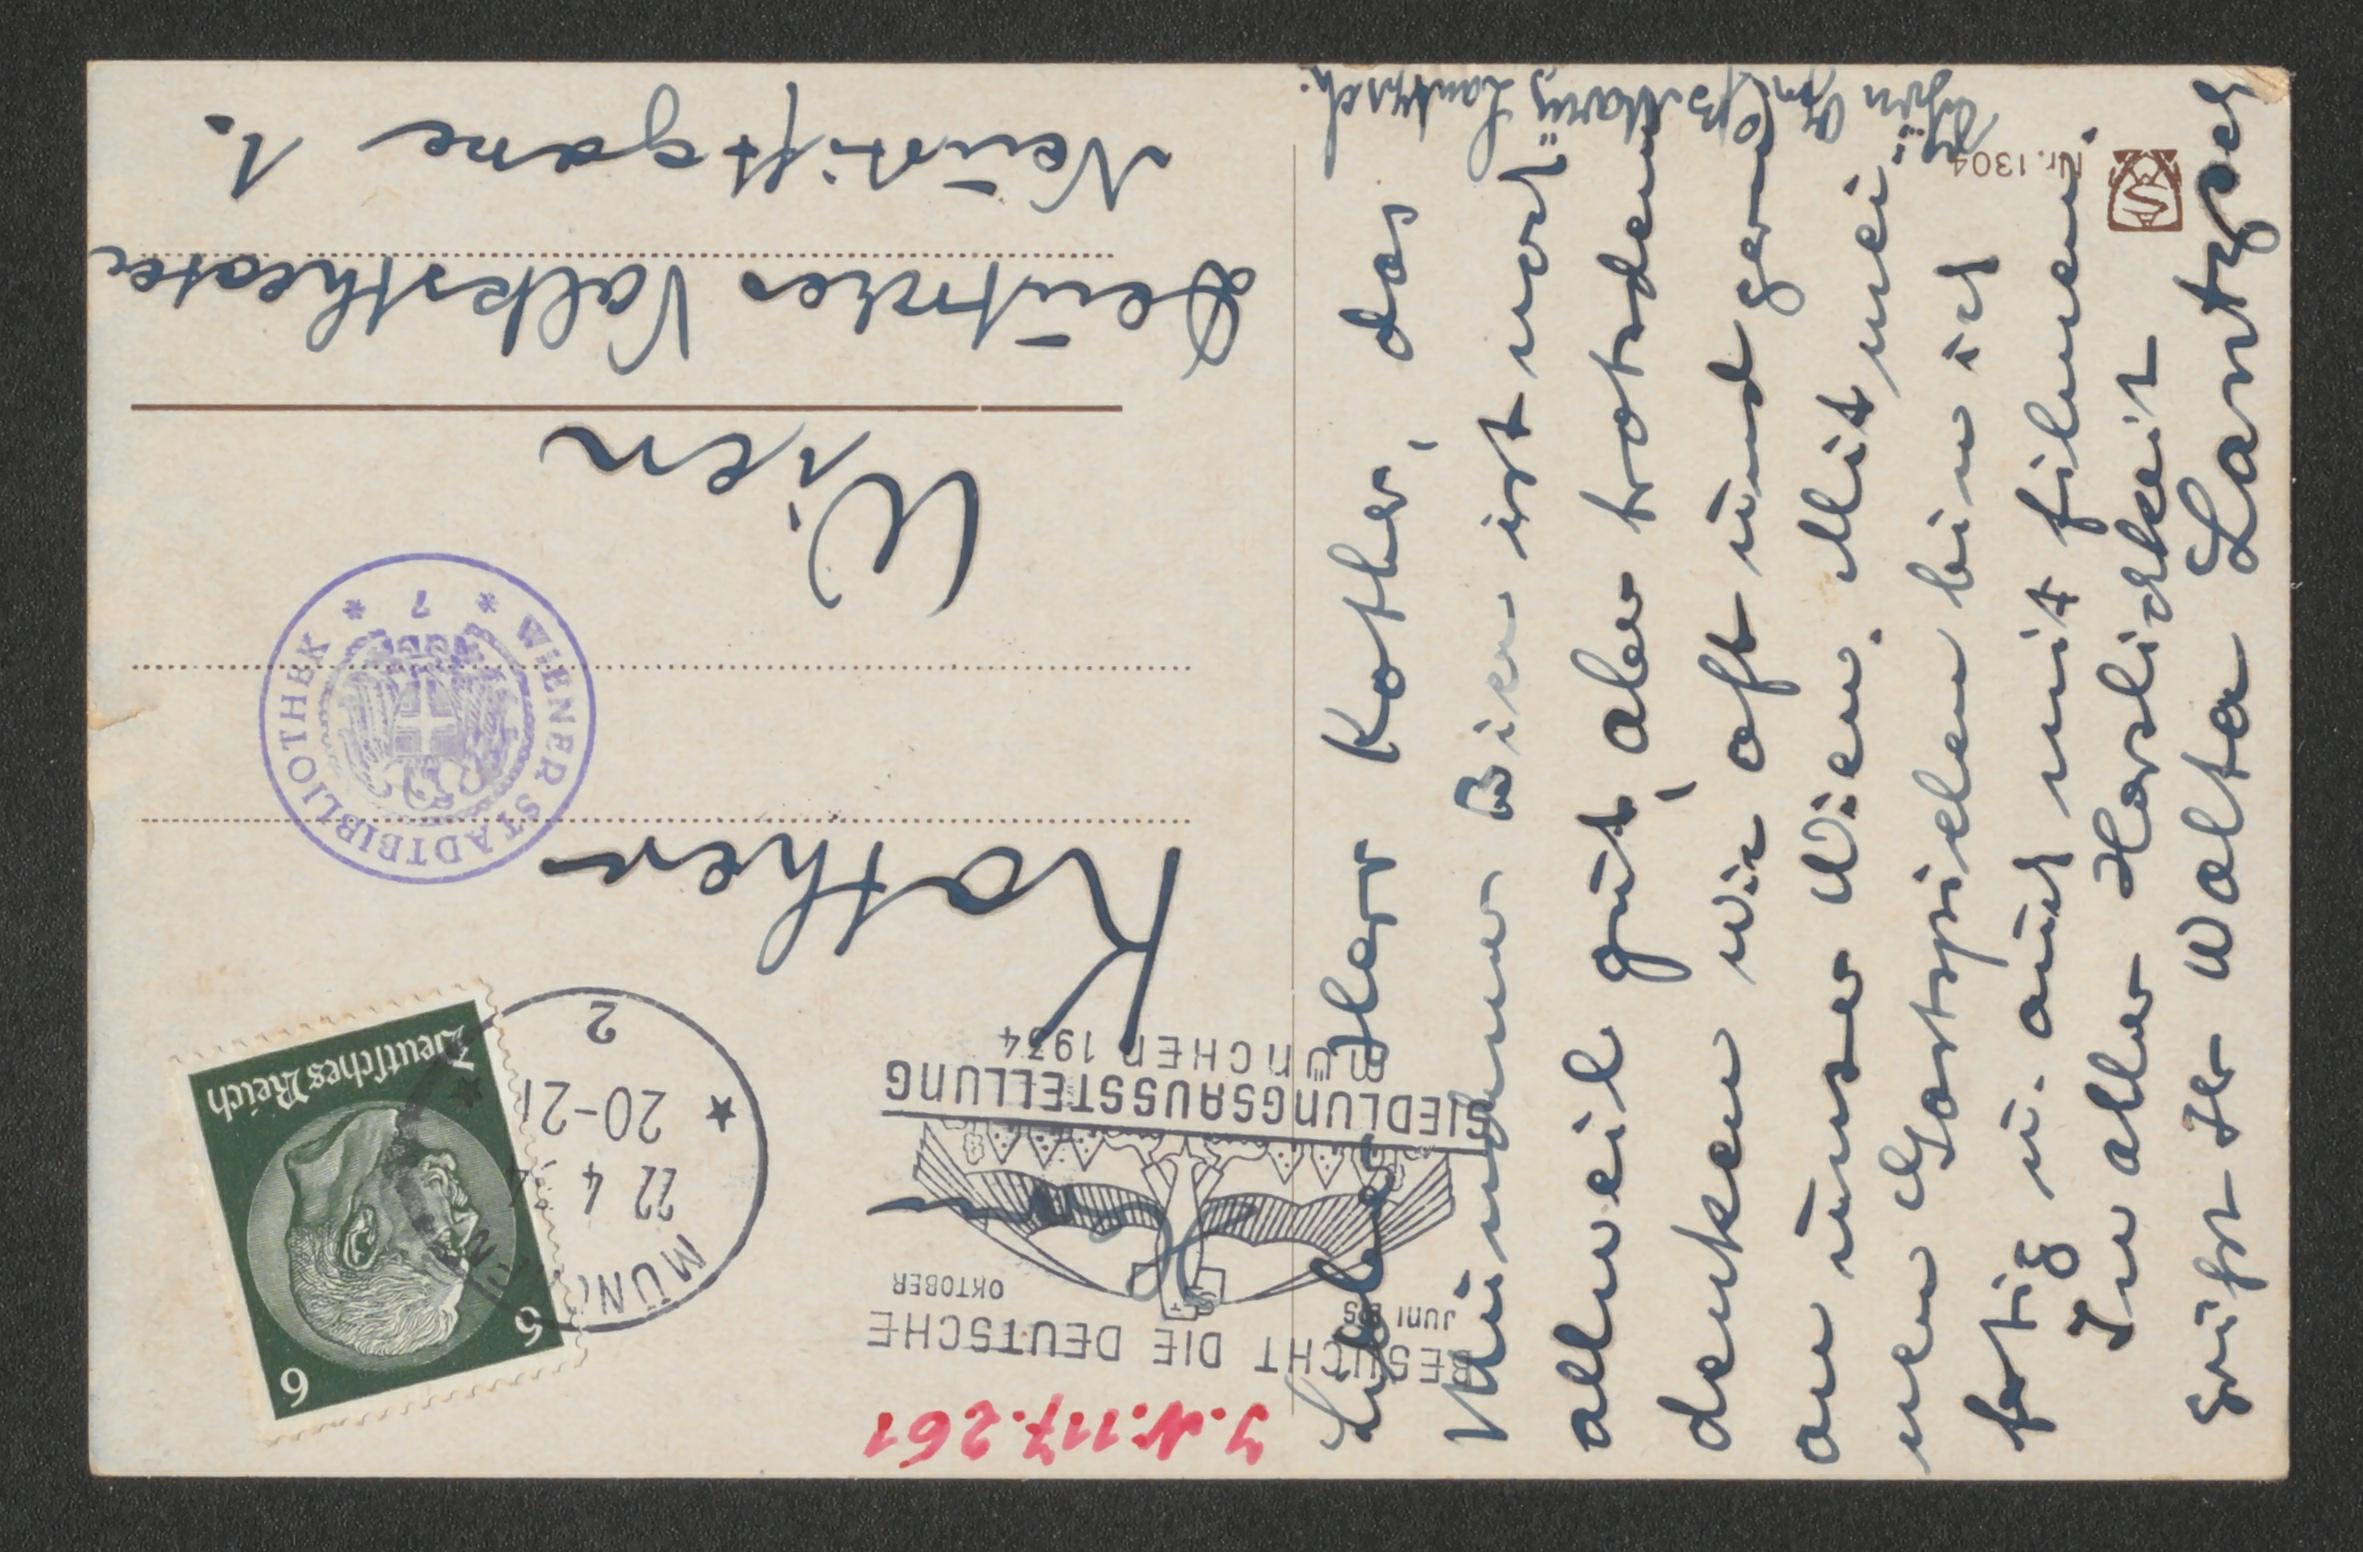 Lieber Herr Kother, das
Münchner Bier ist noch
allweil gut, aber trotsdem
denken wir oft und gern
an unser Wien. Mit mei-
nen Gastspielen bin ich
fertig u. auch mit filmen.
In aller Herslichkeit
grüfst Ihr Walta Lantzsch
Maria Lantzsch.
Nr. 1304
WS
J.N. 117.261
BESUCHT DIE DEUTSCHE
JUNI BIS OKTOBER
SIEDLUNGSAUSSTELLUNG
MÜNCHEN 1934
MÜN
22 4
20-21
2
6 6
Deutsches Reich
Herrn
Kothern
WIENER STADTBIBLIOTHEK
* 7 *
Wien
Deutsches Volkstheater
Neustiftgasse 1.